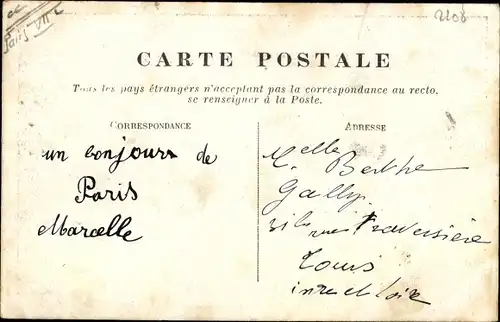 Paris VII
2208
CARTE POSTALE
Tous les pays étrangers n'acceptent pas la correspondance au recto,
se renseigner à la Poste.
CORRESPONDANCE
ADRESSE
un bonjour de
Paris
Marcelle
Melle Berthe
Gally
rue Traversière
Tours
indre et Loire